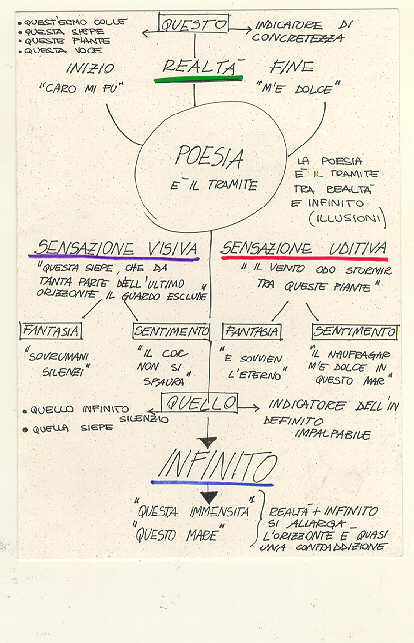 • QUEST'ERMO COLLE
• QUESTA SIEPE
• QUESTE PIANTE
• QUESTA VOCE
QUESTO
INDICATORE DI
CONCRETEZZA
INIZIO
REALTÀ
FINE
"CARO MI FU"
"M'È DOLCE"
POESIA
È IL TRAMITE
LA POESIA
È IL TRAMITE
TRA REALTÀ
E INFINITO
(ILLUSIONI)
SENSAZIONE VISIVA
SENSAZIONE UDITIVA
"QUESTA SIEPE, CHE DA
TANTA PARTE DELL'ULTIMO
ORIZZONTE IL GUARDO ESCLUDE"
"IL VENTO ODO STORMIR
TRA QUESTE PIANTE"
FANTASIA
SENTIMENTO
FANTASIA
SENTIMENTO
"SOVRUMANI
SILENZI"
"IL COR
NON SI
SPAURA"
"E SOVVIEN
L'ETERNO"
"IL NAUFRAGAR
M'È DOLCE IN
QUESTO MAR"
• QUELLO INFINITO
SILENZIO
• QUELLA SIEPE
QUELLO
INDICATORE DELL'IN
DEFINITO
IMPALPABILE
INFINITO
"QUESTA IMMENSITÀ"
"QUESTO MARE"
REALTÀ + INFINITO
SI ALLARGA
L'ORIZZONTE E QUASI
UNA CONTADDIZIONE